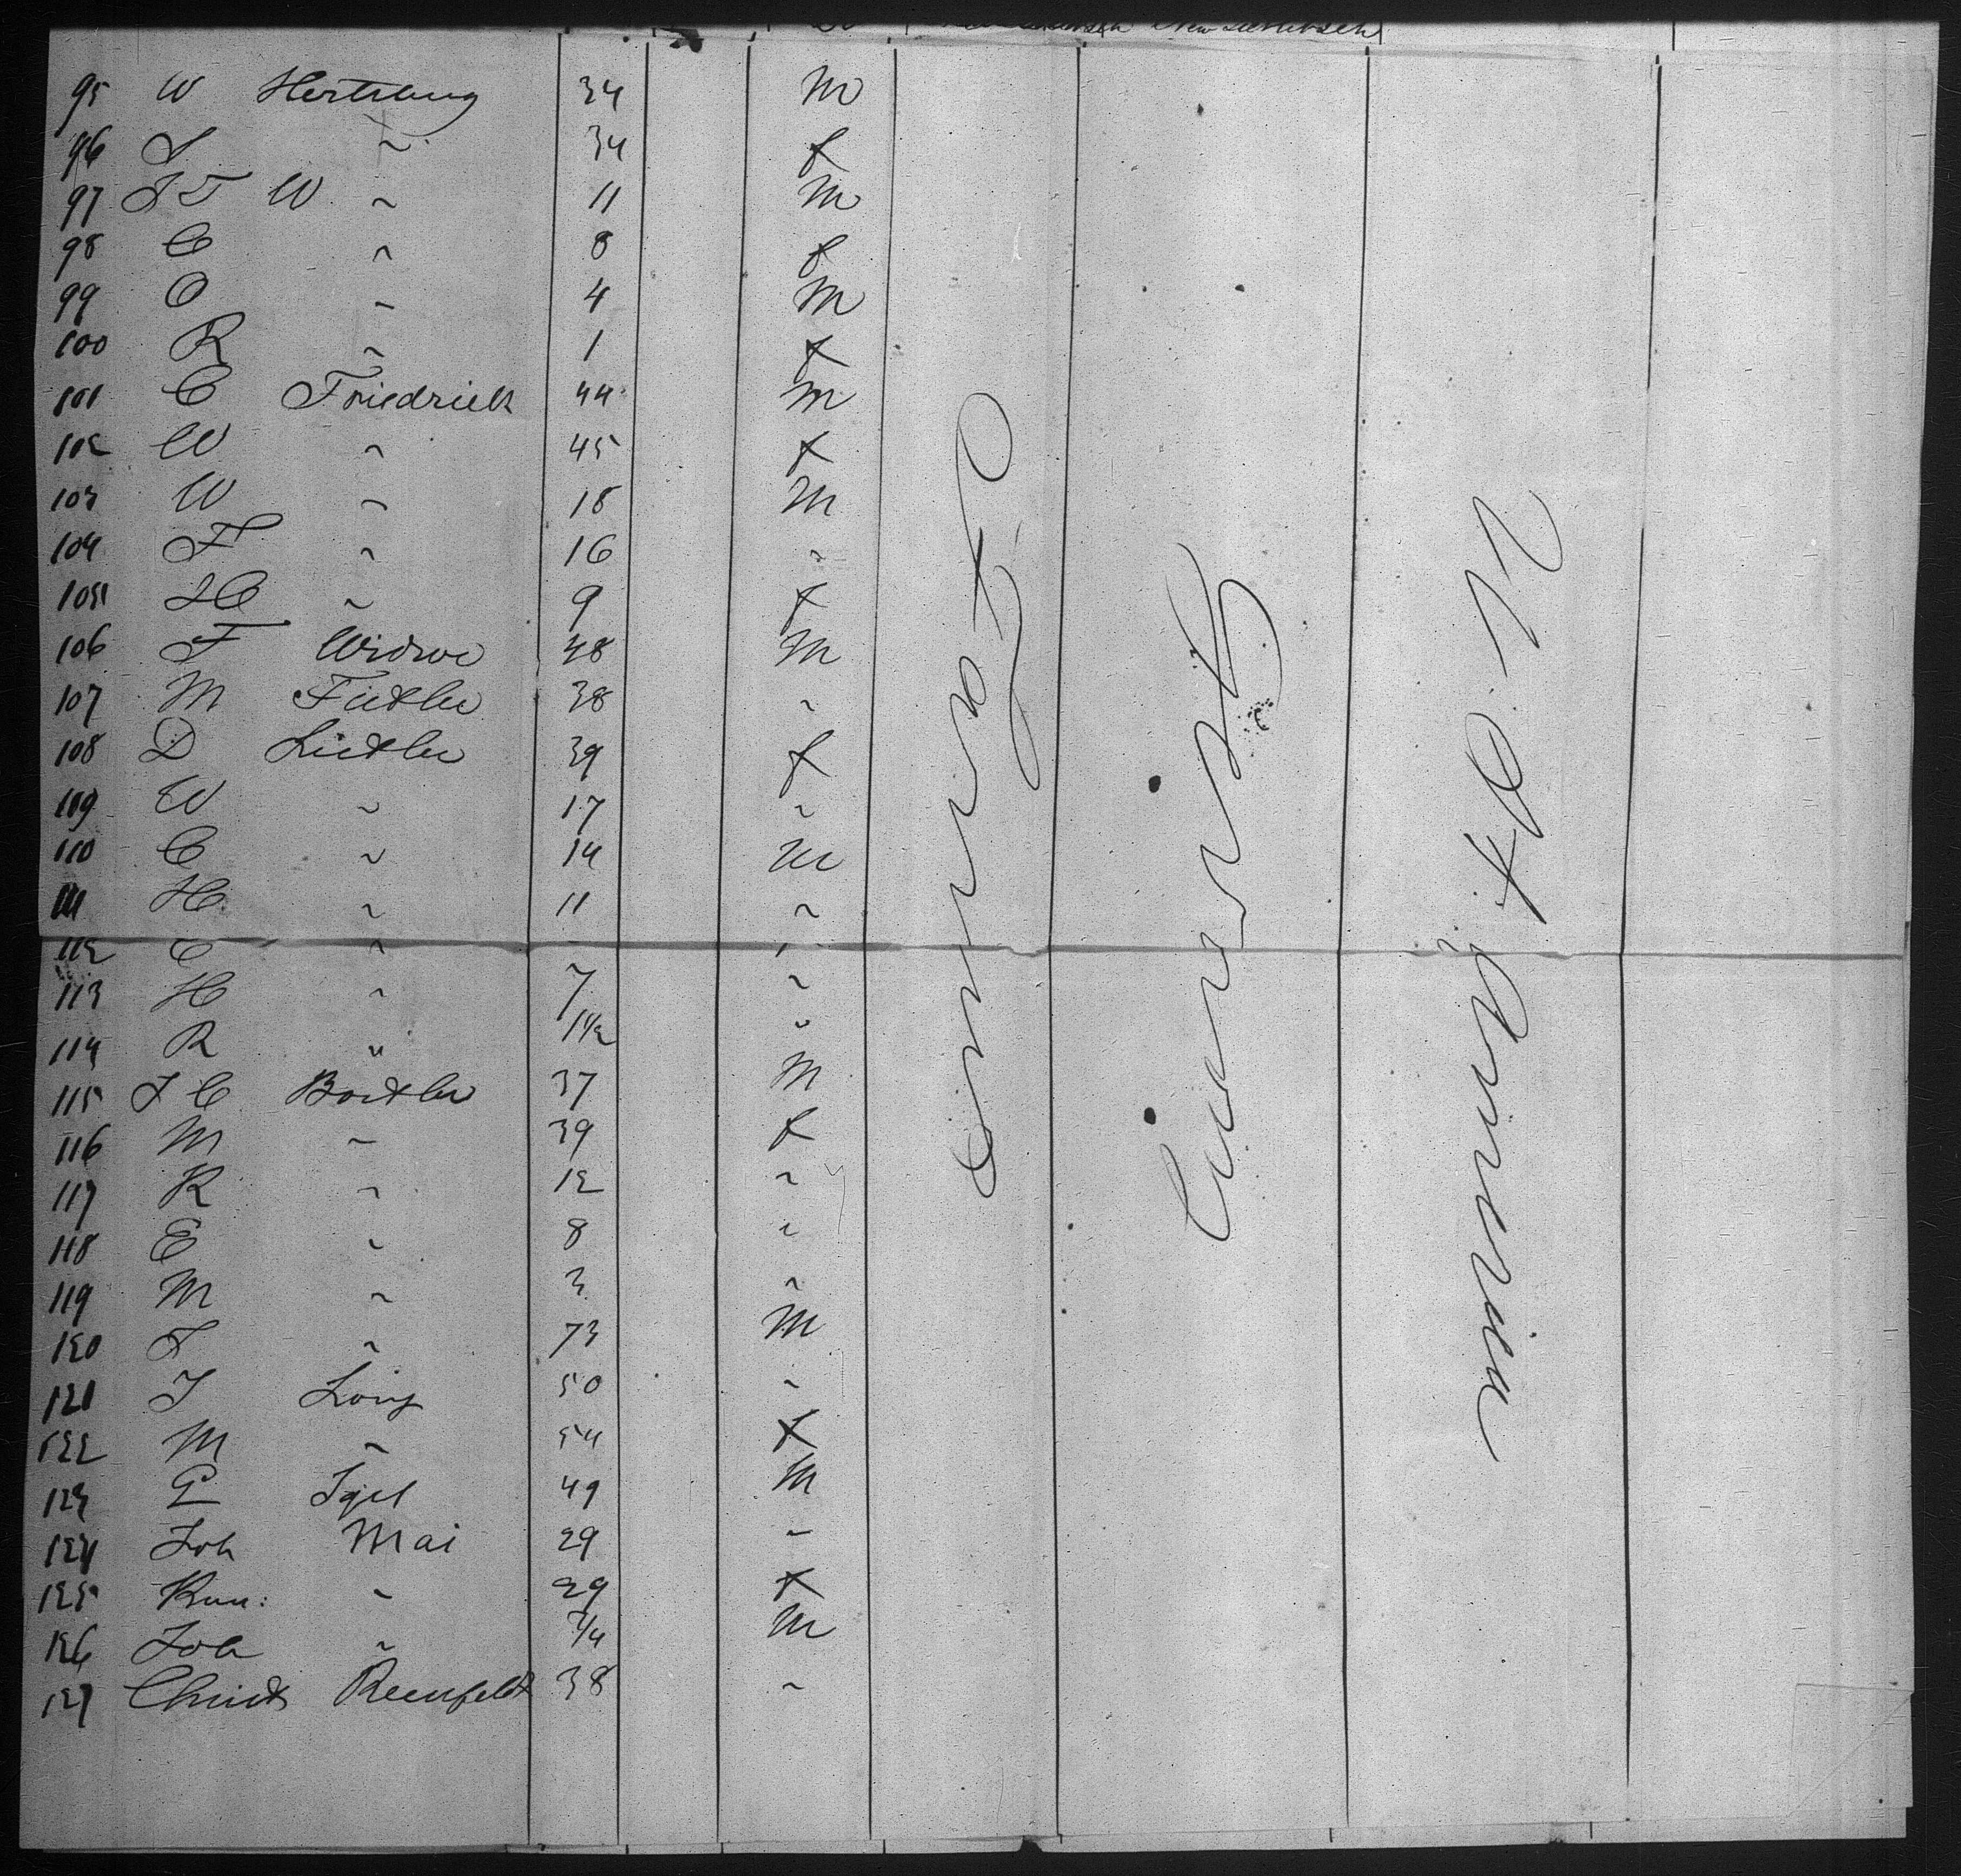 95 W Hertzberg 34 M
96 J " 34 f
97 J F W " 11 M
98 C " 8 f
99 O " 4 M
100 R " 1 f
101 C Friedrich 44 M
102 W " 45 f
103 W " 18 M
104 F " 16 "
105 H C " 9 f
106 F 48 M
107 M Fiedler 38 "
108 D 39 f
109 W " 17 "
110 C " 14 M
111 H " 11 "
112 C " "
113 H " 7 "
114 R " 1 1/2 "
115 J C 37 M
116 M " 39 f
117 K " 12 "
118 E " 8 "
119 M " 3 "
120 J " 73 M
121 J 50 "
122 M " 54 f
123 G Igel 49 M
124 Joh Mai 29 "
125 " 29 f
126 Joh " 3/4 M
127 Christ 38 "
Germany
U. St. America